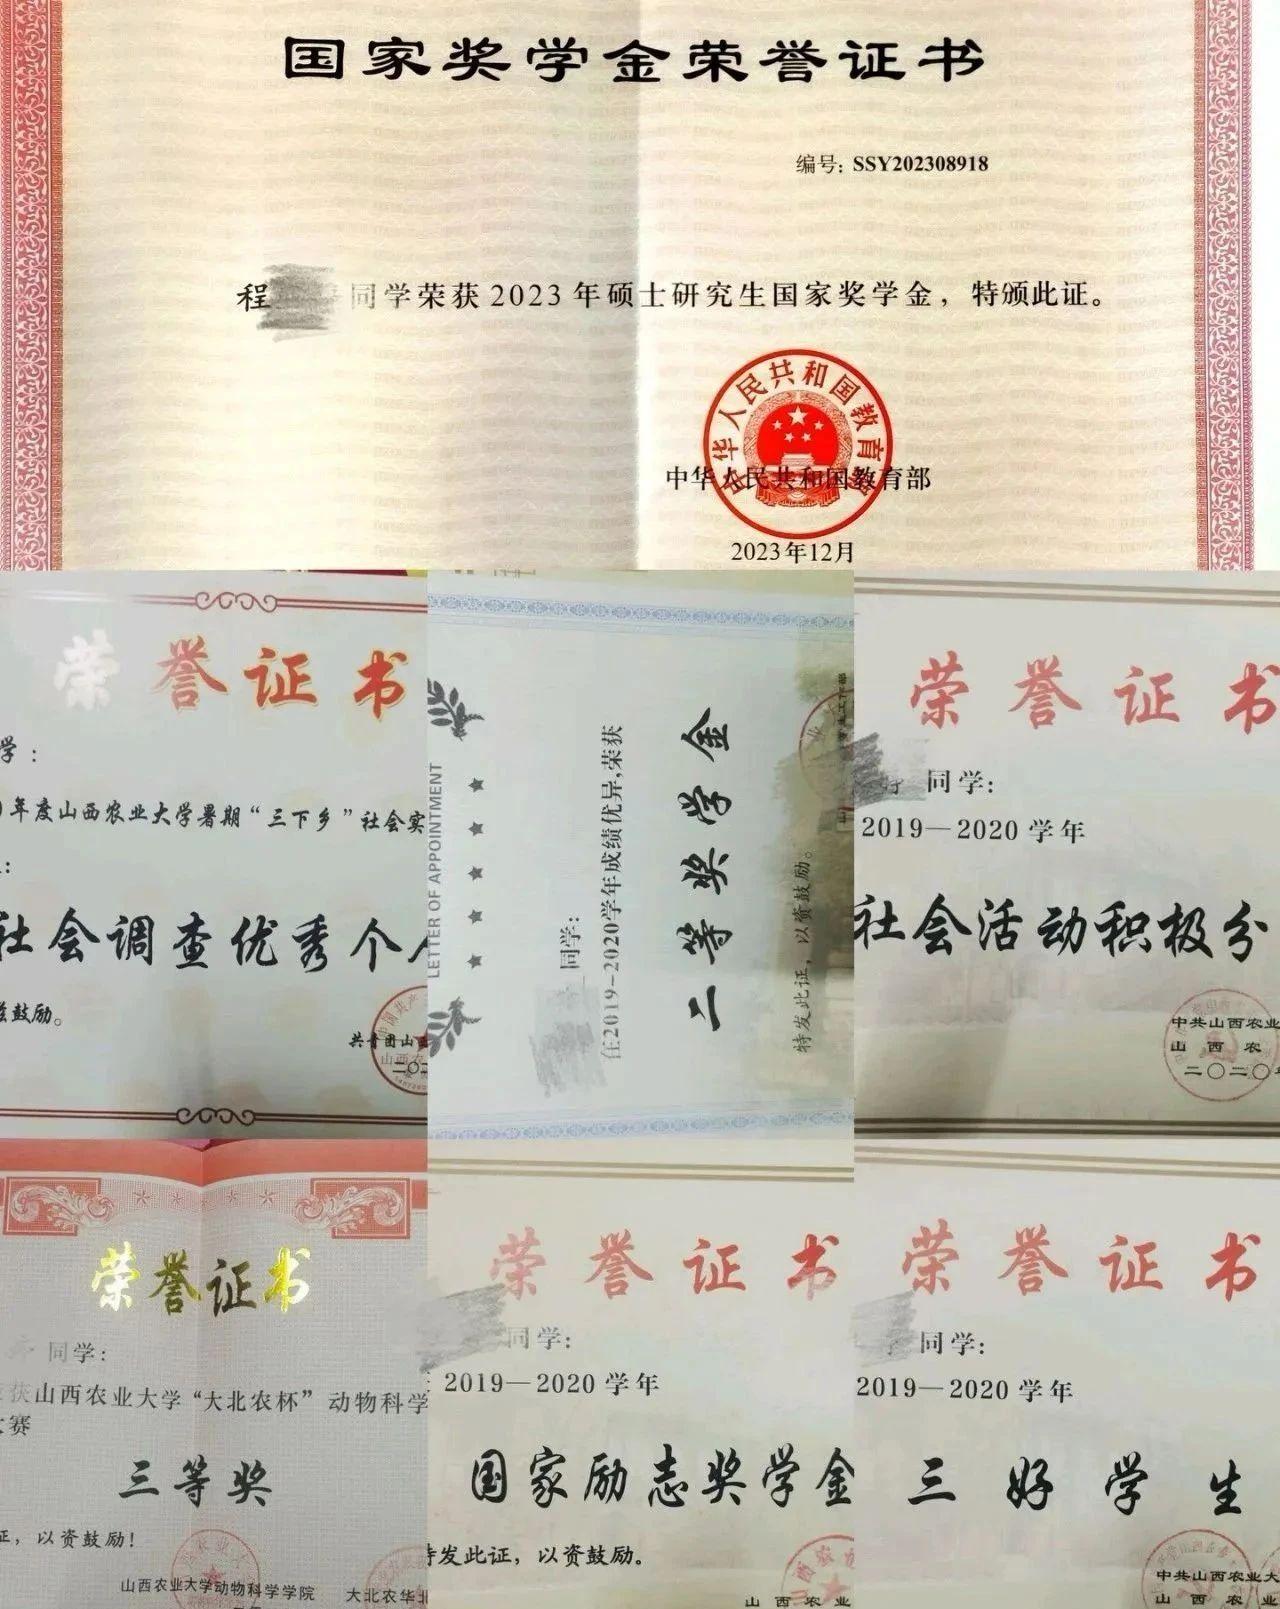 国家奖学金荣誉证书
编号: SSY202308918
程 同学荣获 2023 年硕士研究生国家奖学金，特颁此证。
中华人民共和国教育部
中华人民共和国教育部
2023年12月
荣誉证书
学：
年度山西农业大学暑期“三下乡”社会实
社会调查优秀个
鼓励。
共青团山西
二〇二
LETTER OF APPOINTMENT
同学：
在2019-2020学年成绩优异,荣获
二等奖学金
特发此证，以资鼓励。
荣誉证书
同学:
2019—2020 学年
社会活动积极分
中共山西农业
山西农
二〇二〇年
荣誉证书
同学:
获山西农业大学“大北农杯”动物科学
大赛
三等奖
证，以资鼓励！
山西农业大学动物科学学院
大北农华北
荣誉证书
同学:
2019—2020 学年
国家励志奖学金
特发此证，以资鼓励。
山西农业
荣誉证书
同学:
2019—2020 学年
三好学生
中共山西农业大
山西农业